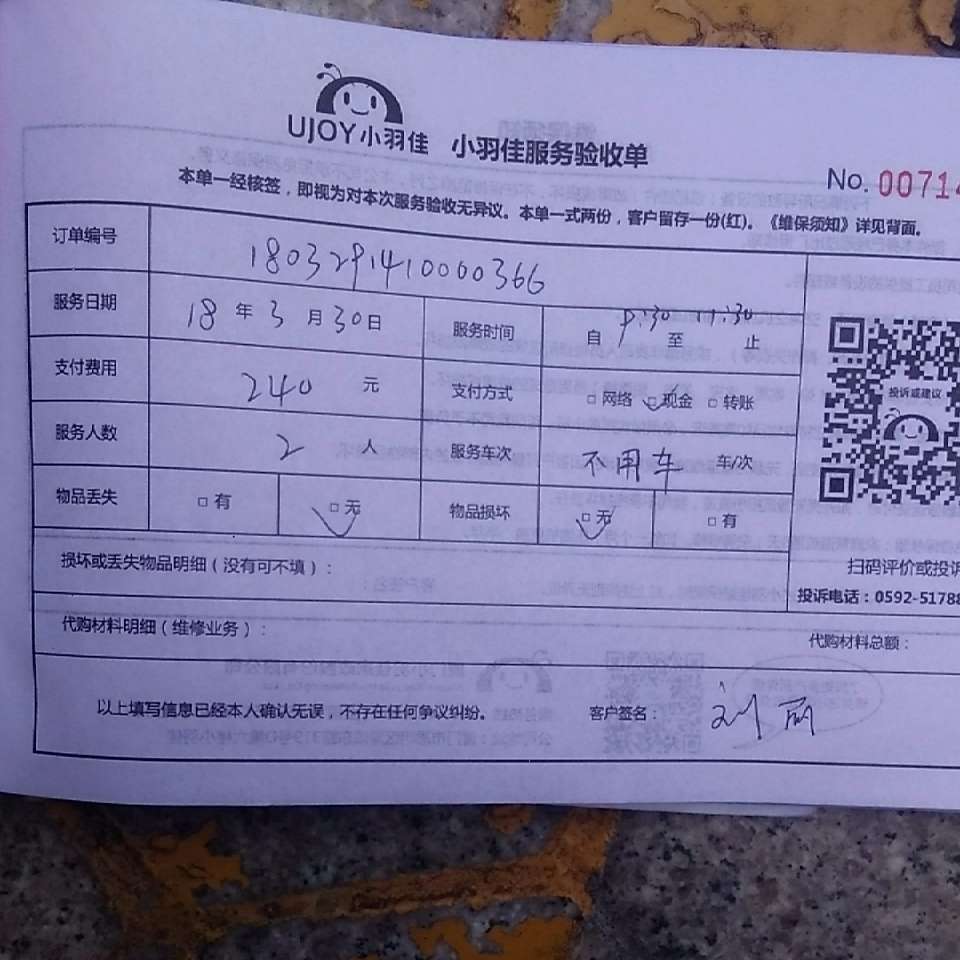 UJOY小羽佳 小羽佳服务验收单
No. 00714
本单一经核签，即视为对本次服务验收无异议。本单一式两份，客户留存一份(红)。《维保须知》详见背面。
订单编号 1803291410000366
服务日期 18 年 3 月 30 日 服务时间 自 8:30 至 11:30 止
支付费用 240 元 支付方式 □网络 ☑现金 □转账
投诉或建议
服务人数 2 人 服务车次 不用车 车/次
物品丢失 □有 ☑无 物品损坏 ☑无 □有
损坏或丢失物品明细（没有可不填）：
扫码评价或投诉
投诉电话：0592-51788
代购材料明细（维修业务）： 代购材料总额：
以上填写信息已经本人确认无误，不存在任何争议纠纷。 客户签名： 刘丽